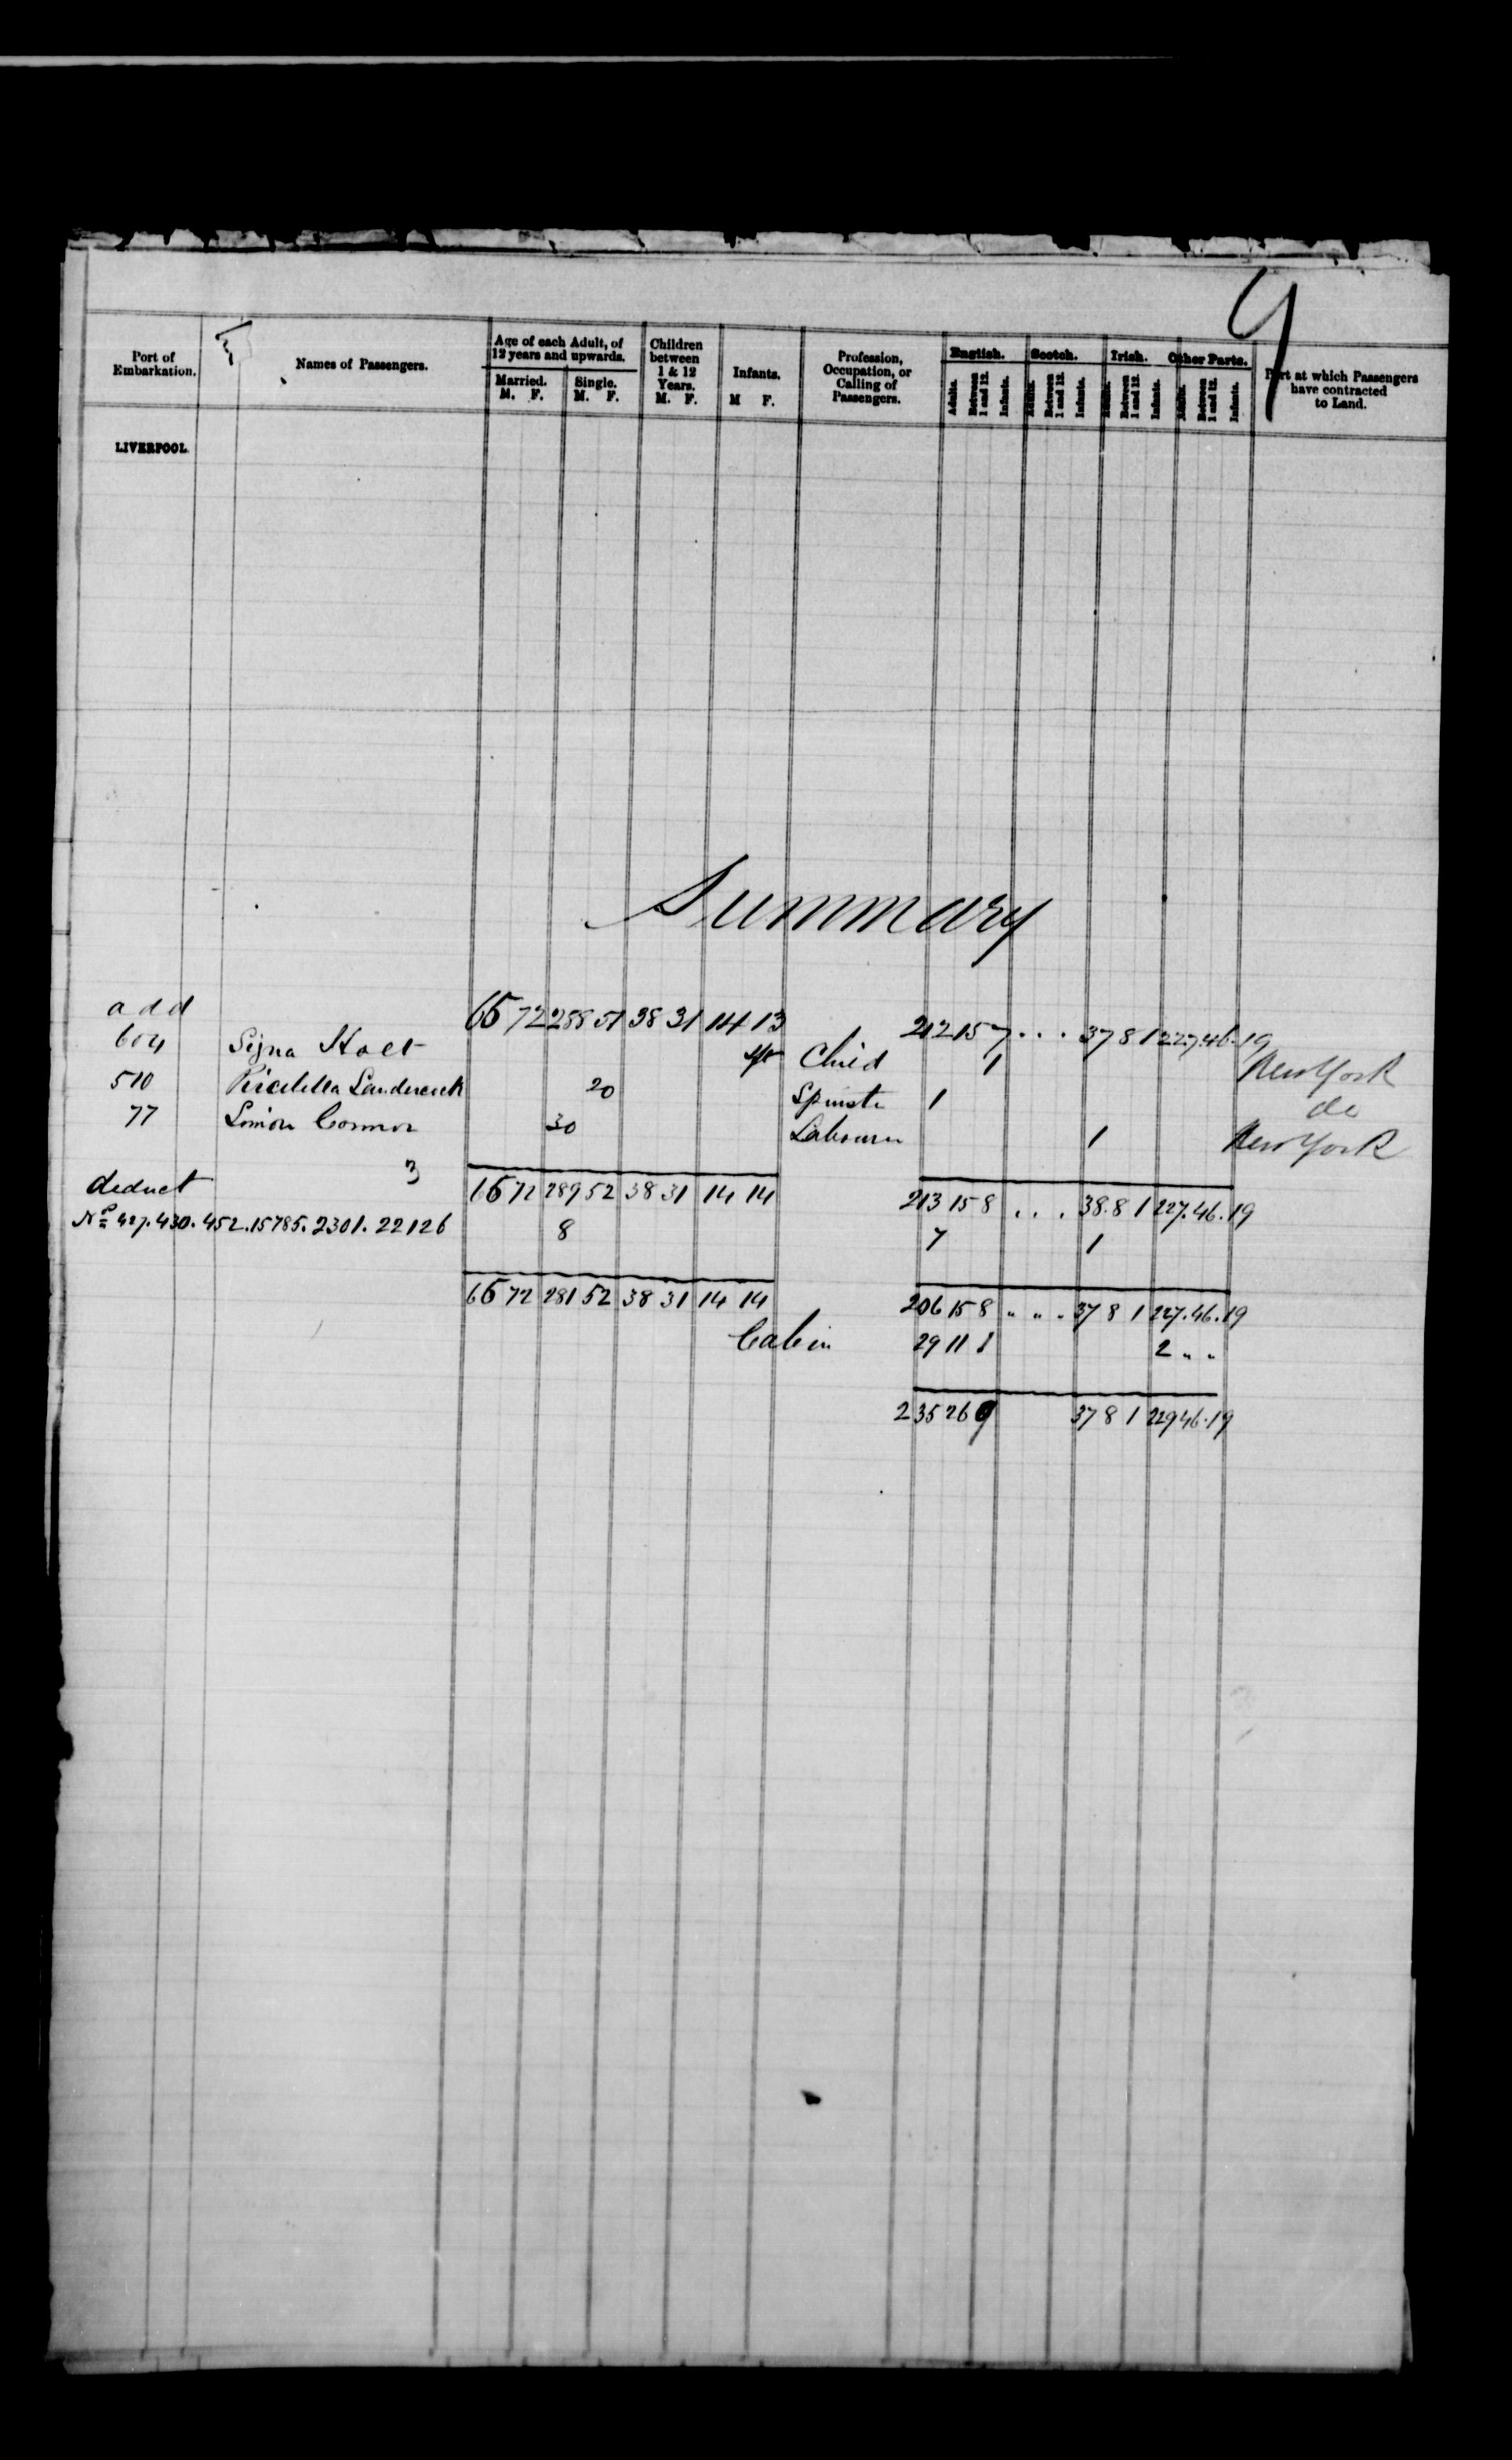 9
Port of Embarkation. Names of Passengers. Age of each Adult, of 12 years and upwards. Children between 1 & 12 Years. Infants. Profession, Occupation, or Calling of Passengers. English. Scotch. Irish. Other Parts. Port at which Passengers have contracted to Land.
Married. M. F. Single. M. F. M. F. M F. Adults. Between 1 and 12. Infants. Adults. Between 1 and 12. Infants. Adults. Between 1 and 12. Infants. Adults. Between 1 and 12. Infants.
LIVERPOOL
Summary
add 72 288 51 38 31 14 13 212 15 7 . . . 37 8 1 227.46.19
604 Signa Child 1 New York
510 20 Spinstr 1 do
77 Simon Connor 30 Labourer 1 New York
3
deduct 72 289 52 38 31 14 14 213 15 8 . . . 38.8 1 227.46.19
Nos 427.430.452.15785.2301.22126 8 7 1
72 281 52 38 31 14 14 206 15 8 " " . 37 8 1 227.46.19
Cabin 29 11 1 2 " "
235 26 9 37 8 1 229 46.19